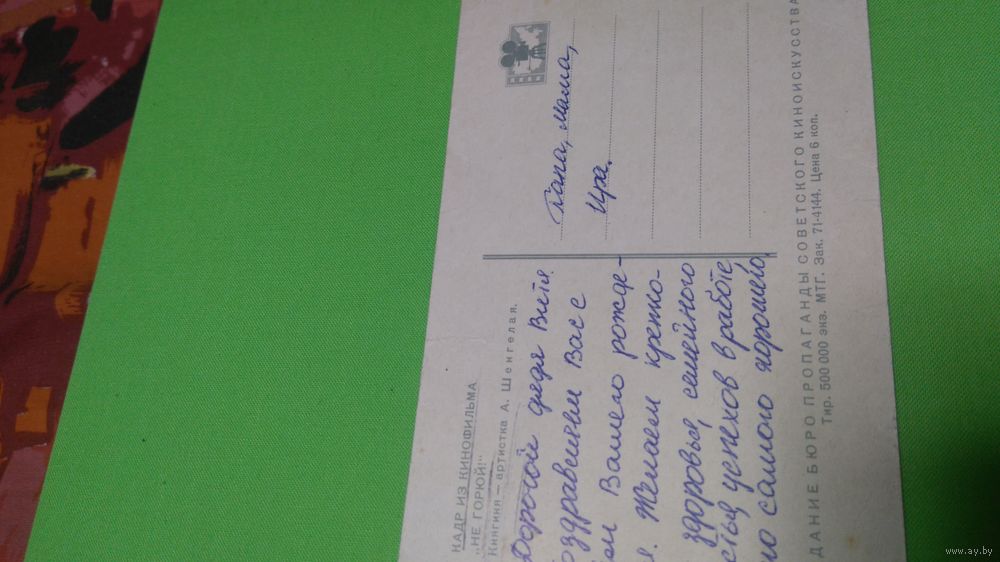 КАДР ИЗ КИНОФИЛЬМА
„НЕ ГОРЮЙ!“
Княгиня — артистка А. Шенгелая.
Дорогой дядя Витя
оздравляем Вас с
ем Вашего рожде-
я. Желаем крепко-
здоровья, семейного
стья, успехов в работе,
го самого хорошего,
Папа, мама,
Ира.
ДАНИЕ БЮРО ПРОПАГАНДЫ СОВЕТСКОГО КИНОИСКУССТВА
Тир. 500 000 экз. МТГ. Зак. 71-4144. Цена 6 коп.
www.ay.by